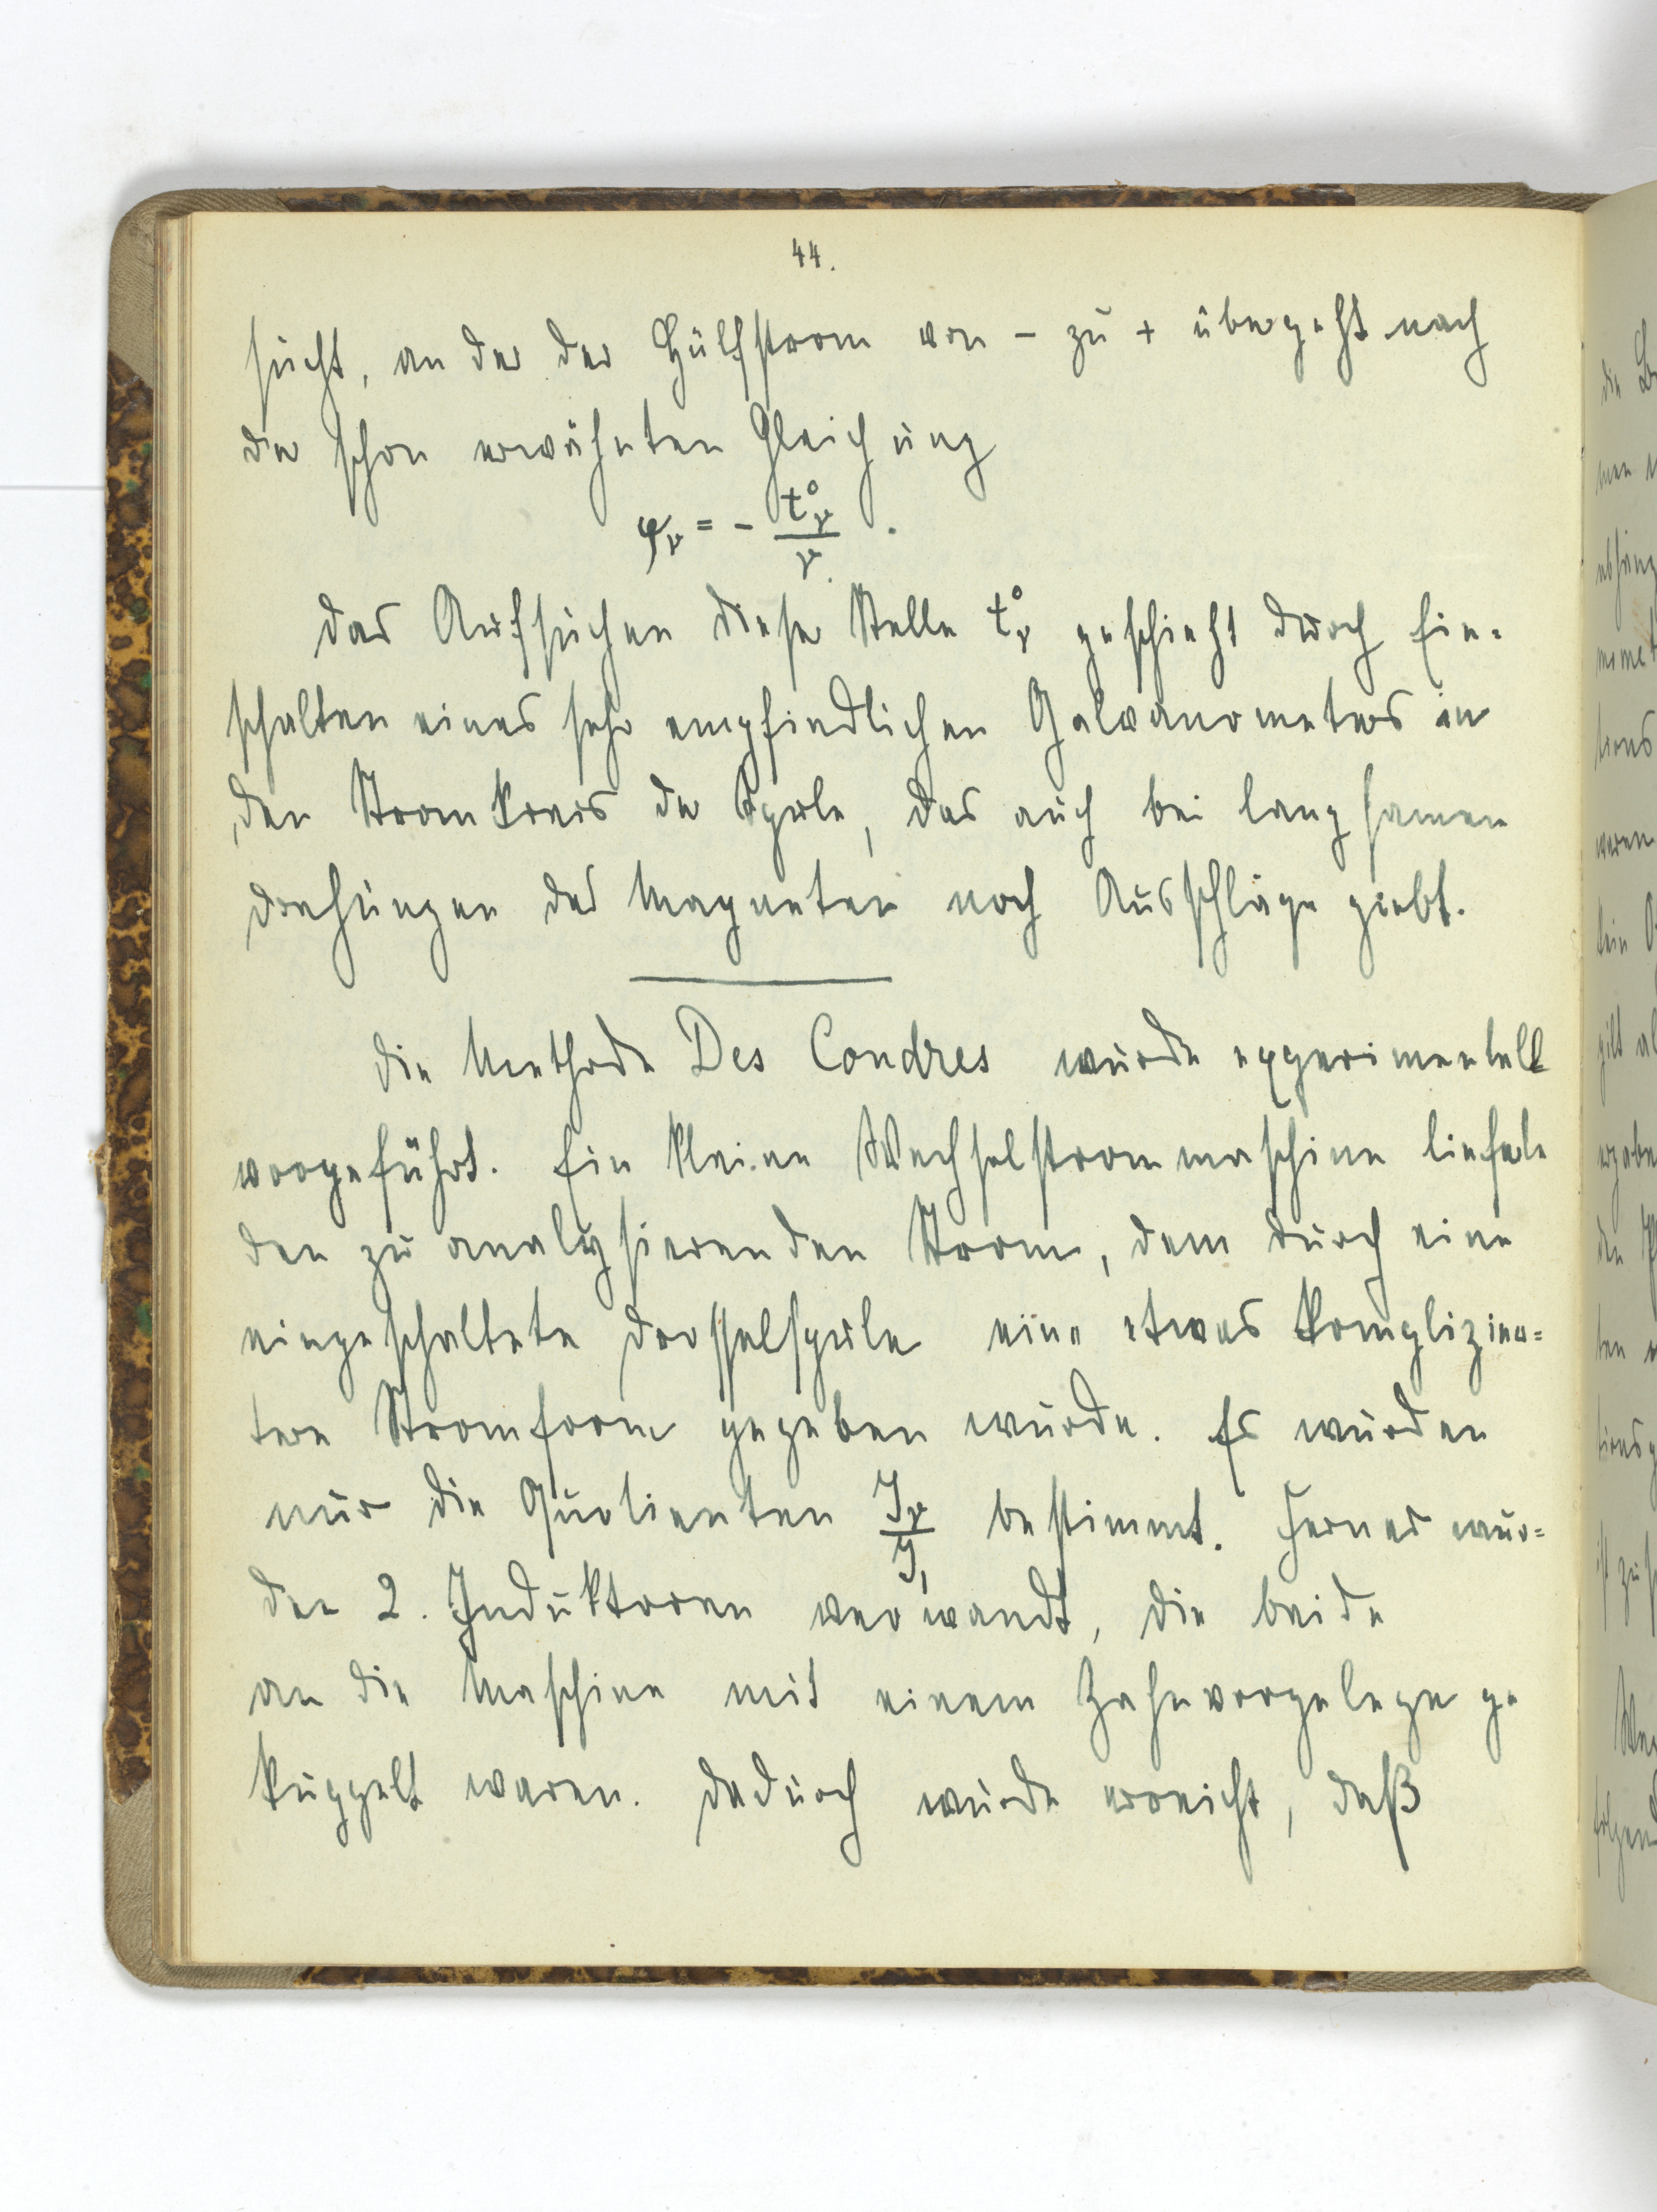 44.
sucht, an der der Hülfstrom von - zu + übergeht nach
der schon erwähnten Gleichung
φ_ν = - t°_ν / ν .
Das Aufsuchen dieser Stelle t°_ν geschieht durch Ein-
schalten eines sehr empfindlichen Galvanometers in
den Stromkreis der Spule, das auch bei langsamen
Drehungen des Magneten noch Ausschläge giebt.
Die Methode Des Condres wurde experimentell
vorgeführt. Ein kleine Wechselstrommaschine lieferte
den zu analysierenden Strom, dem durch eine
eingeschaltete Drosselspule eine etwas komplizier=
tere Stromform gegeben wurde. Es wurden
nur die Quotienten J_ν / J_1 bestimmt. Ferner wur=
den 2. Induktoren verwandt, die beide
an die Maschine mit einem Zahnvorgelege ge
kuppelt waren. Dadurch wurde erreicht, daß